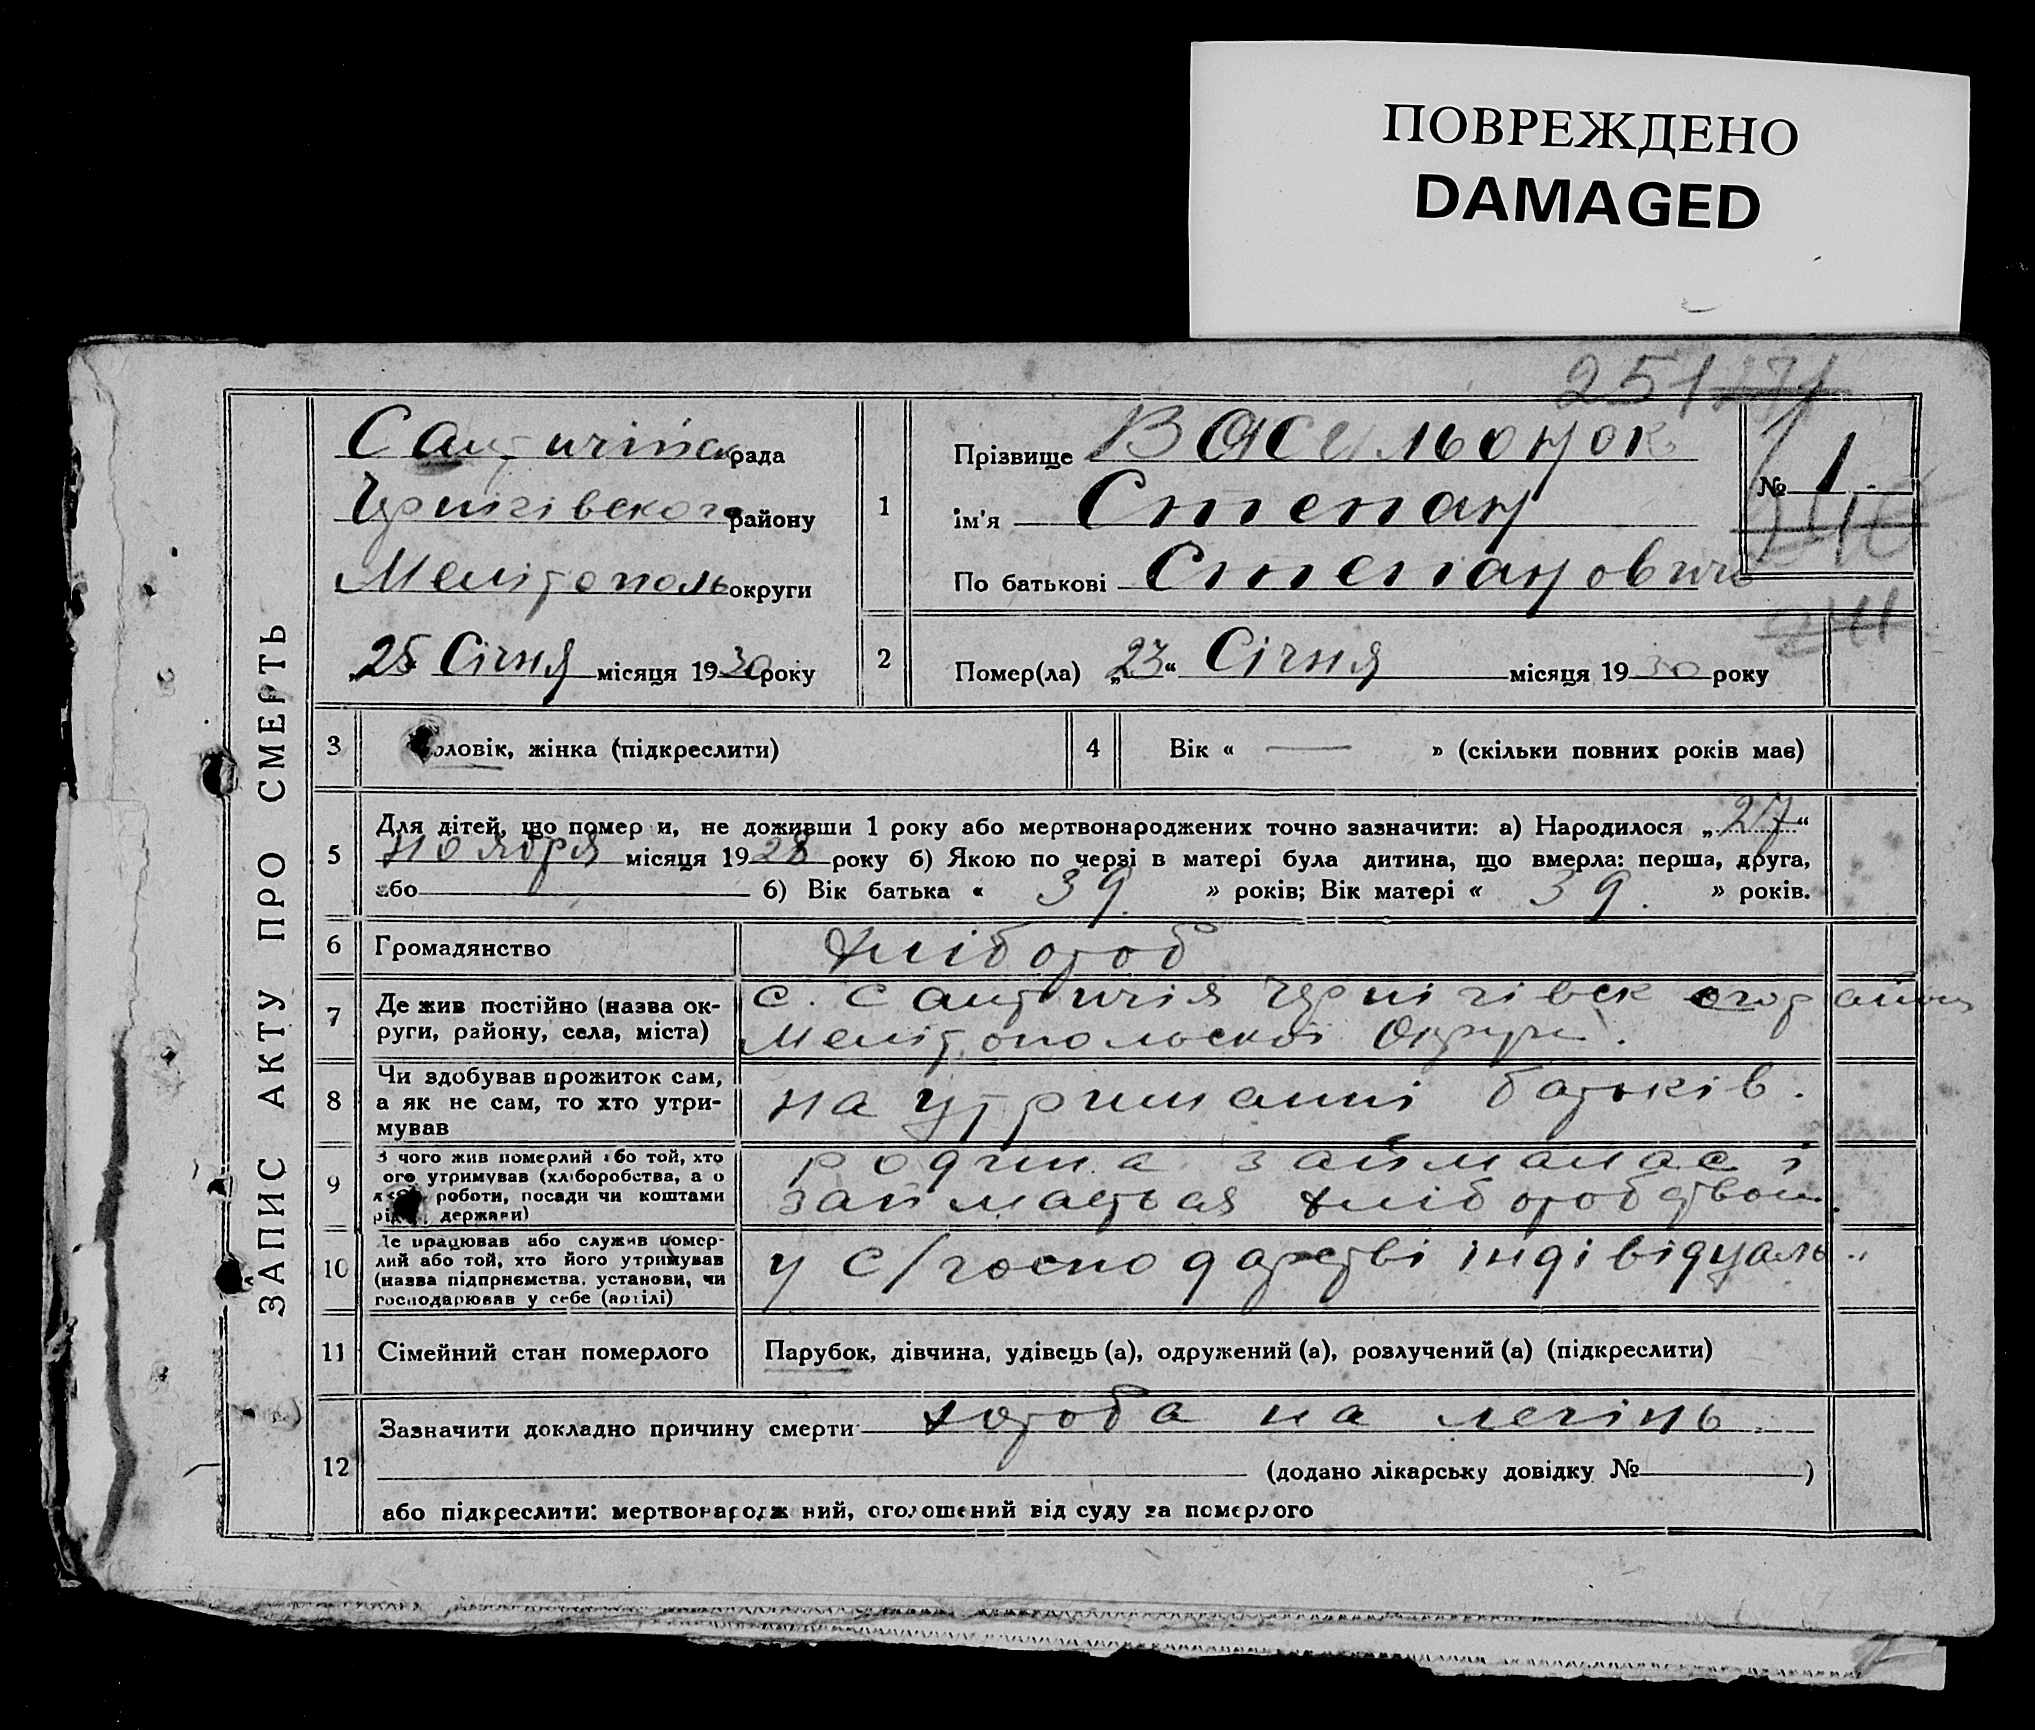 ПОВРЕЖДЕНО
DAMAGED
251
ЗАПИС АКТУ ПРО СМЕРТЬ
рада
Чернігівского району
Мелітополь округи
„25 Січня місяця 1930 року
1
Прізвище Васильонок
ім'я Степан
По батькові Степанович
№ 1.
2
Помер(ла) „23“ Січня місяця 1930 року
3
оловік, жінка (підкреслити)
4
Вік « — » (скільки повних років має)
5
Для дітей, що помер и, не доживши 1 року або мертвонароджених точно зазначити: а) Народилося „27“
ноября місяця 1928 року б) Якою по черзі в матері була дитина, що вмерла: перша, друга,
або 6) Вік батька « 39. » років; Вік матері « 39. » років.
6
Громадянство
хлібороб
7
Де жив постійно (назва ок-
руги, району, села, міста)
с. Чернігівского району
Мелітопольскої Округи.
8
Чи здобував прожиток сам,
а як не сам, то хто утри-
мував
на утриманні батьків.
9
З чого жив померлий або той, хто
ого утримував (хліборобства, а о
роботи, посади чи коштами
держави)
родина займалас і
займається хліборобством.
10
Де працював або служив помер-
лий або той, хто його утримував
(назва підприємства, установи, чи
господарював у себе (артілі)
у с/господарстві індівідуаль
11
Сімейний стан померлого
Парубок, дівчина, удівець (а), одружений (а), розлучений (а) (підкреслити)
12
Зазначити докладно причину смерти хороба на легінь.
(додано лікарську довідку № )
або підкреслити: мертвонародж ний, оголошений від суду за померлого